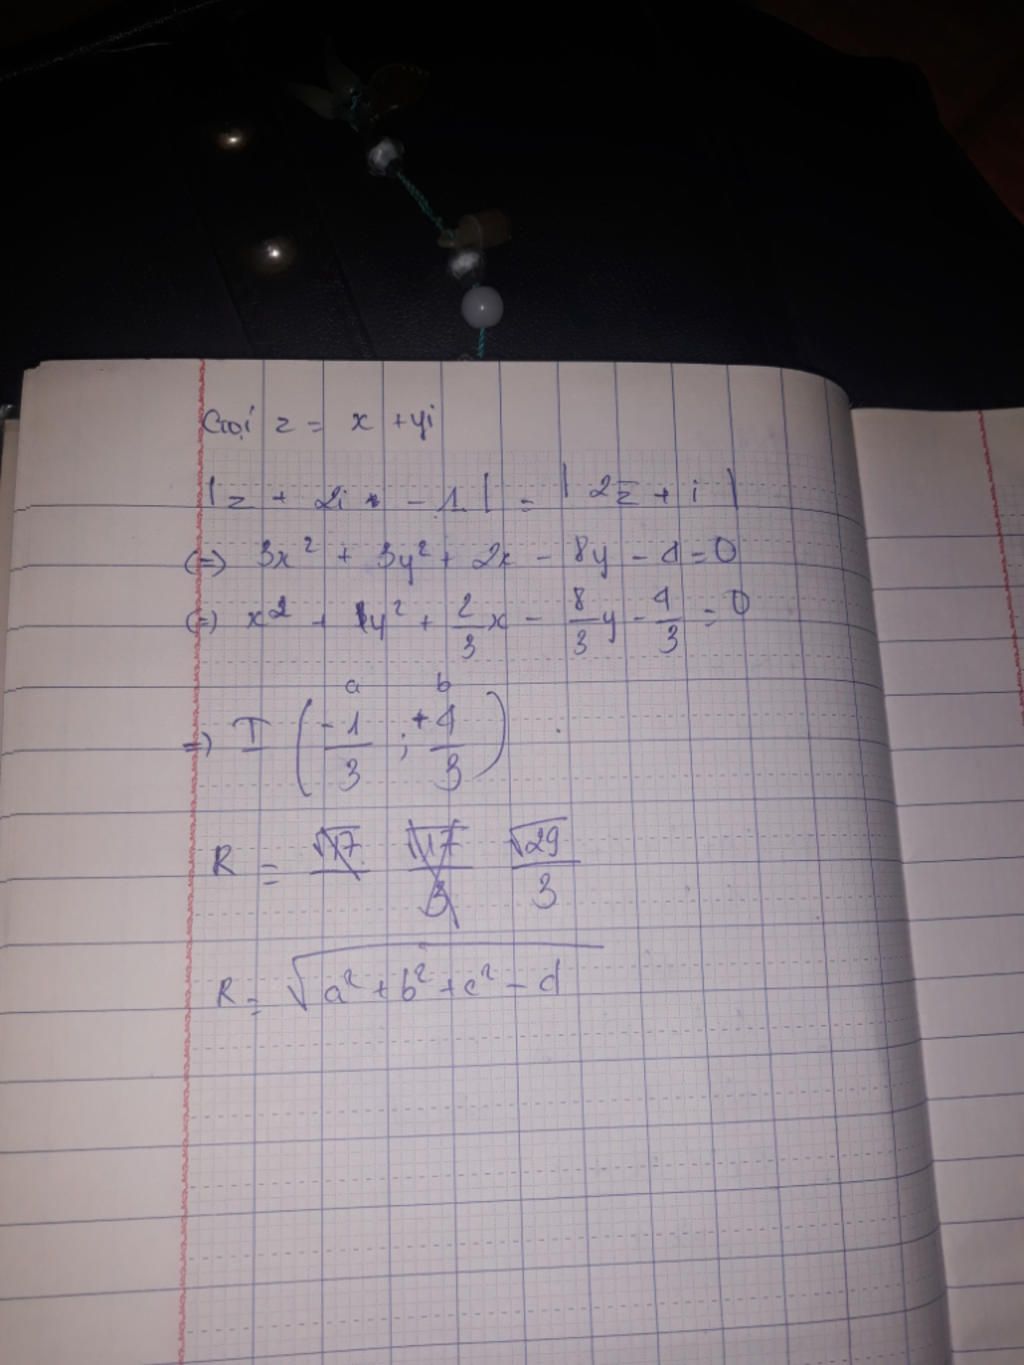 Gọi z = x + yi
|z + 2i - 1| = |2z̄ + i|
(=) 3x² + 3y² + 2x - 8y - 4 = 0
(=) x² + 1y² + 2/3 x - 8/3 y - 4/3 = 0
a b
=) I (-1/3 ; +4/3)
R = √17 √17/3 √29/3
R = √a² + b² + c² - d